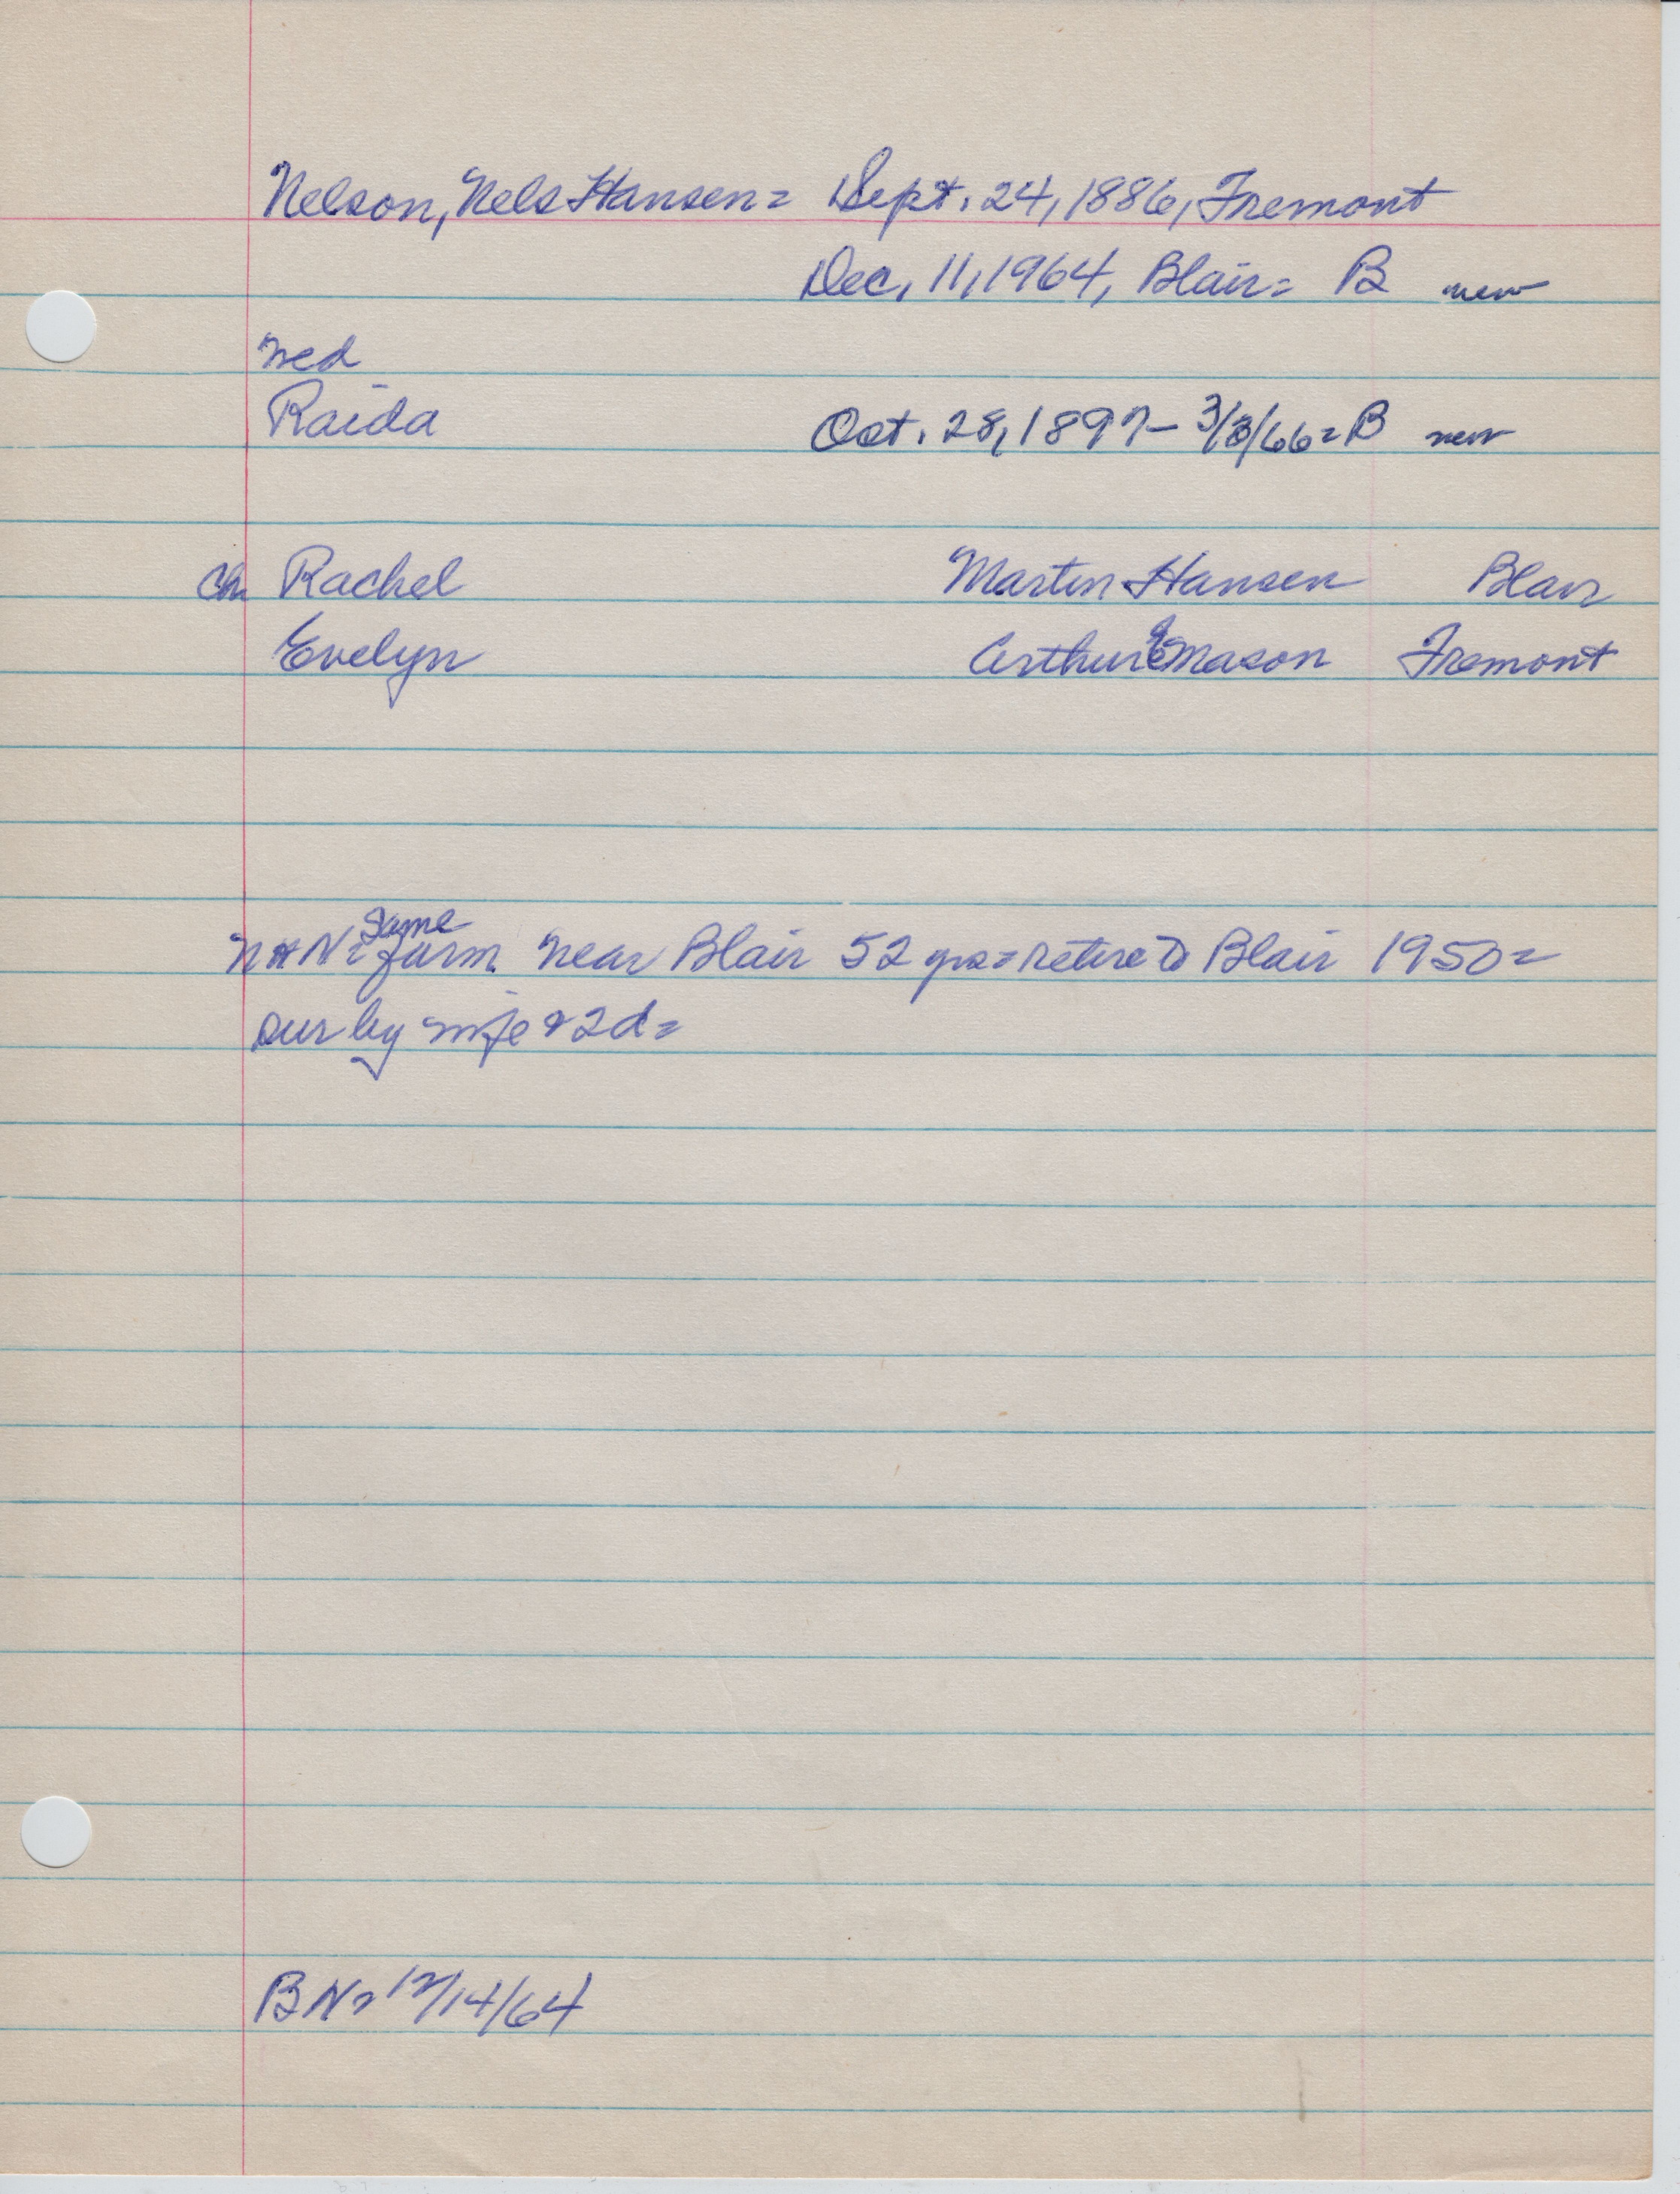 Nelson, Nels Hansen = Sept. 24, 1886, Fremont
Dec, 11, 1964, Blair = B new
wed
Raida Oct. 28, 1897 - 3/8/66 = B new
Ch Rachel Martin Hansen Blair
Evelyn Arthur E Mason Fremont
same
NHN = farm near Blair 52 yrs = retire to Blair 1950 =
sur by wife & 2d =
BN = 12/14/64